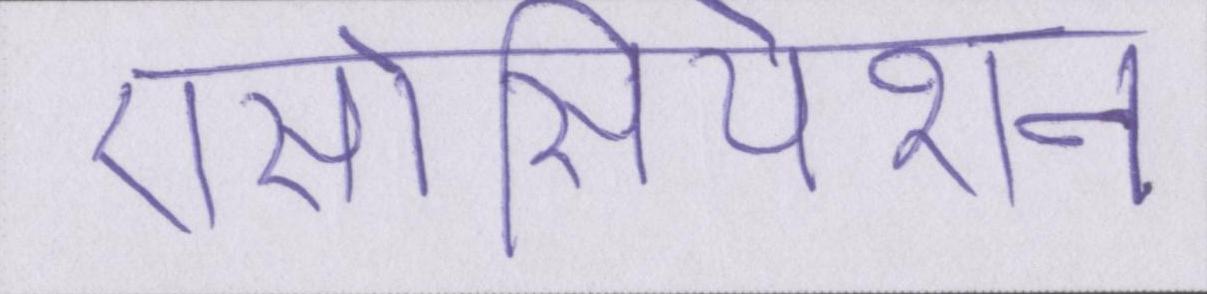 एसोसियेशन